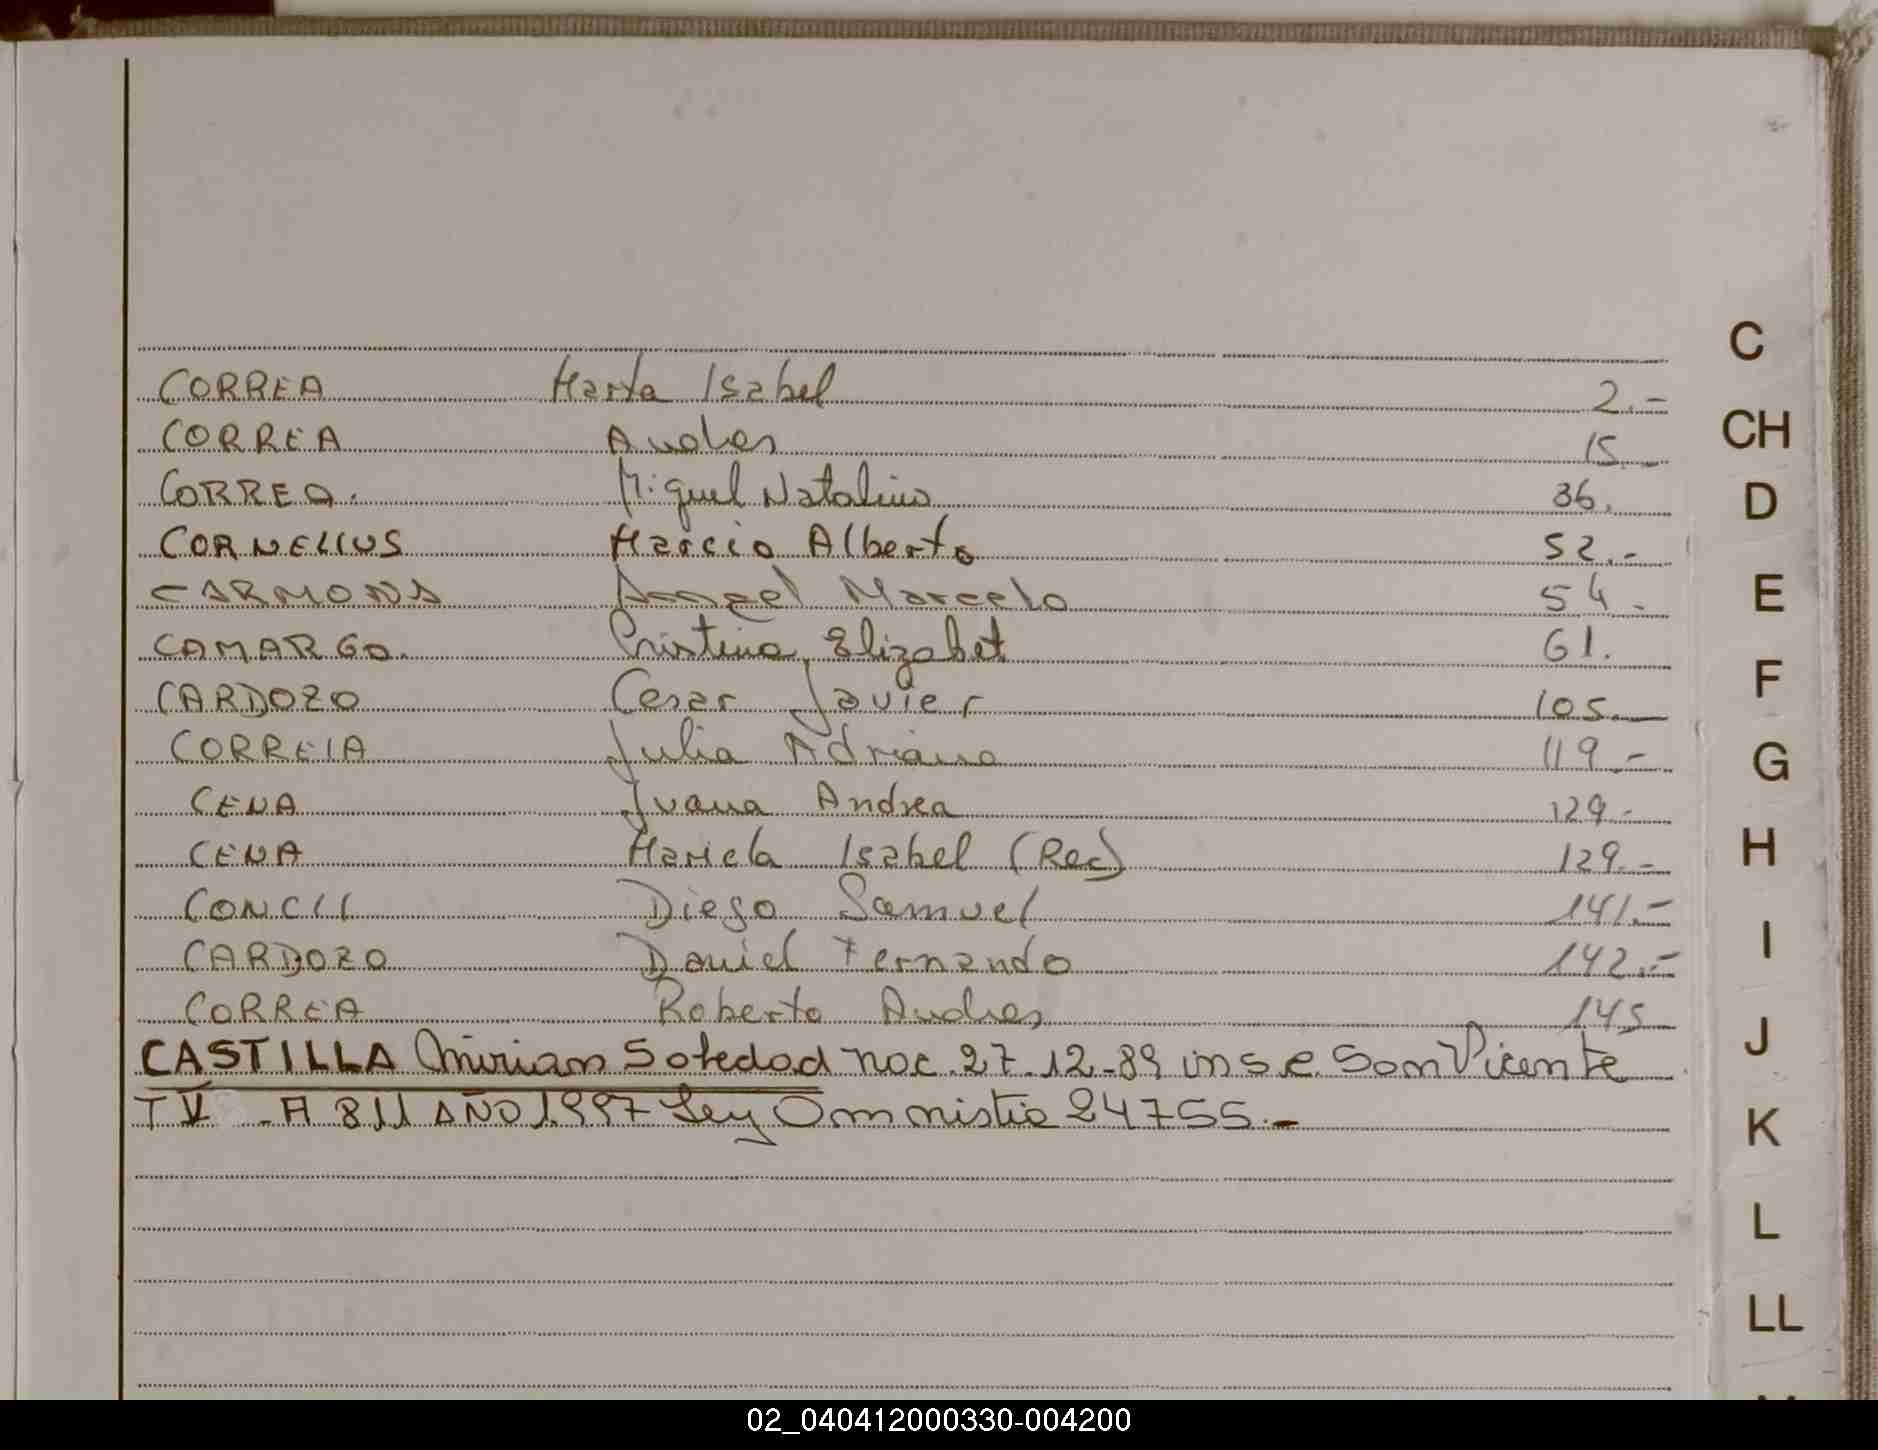 CORREA Marta Isabel 2.-
CORREA Andres 15.-
CORREA. Miguel Natalino 36.
CORNELIUS Marcio Alberto 52.-
CARMONA Angel Marcelo 54.
CAMARGO. Cristina Elizabet 61.
CARDOZO Cesar Javier 105.-
CORREIA Julia Adriana 119.-
CENA Juana Andrea 129.-
CENA Mariela Isabel (Rec) 129.-
CONCII Diego Samuel 141.-
CARDOZO Daniel Fernando 142.-
CORREA Roberto Andres 145
CASTILLA Mirian Soledad nac. 27-12-89 insc. San Vicente
T V - A 811 AÑO 1.997 Ley Amnistia 24755.-
C
CH
D
E
F
G
H
I
J
K
L
LL
02_040412000330-004200